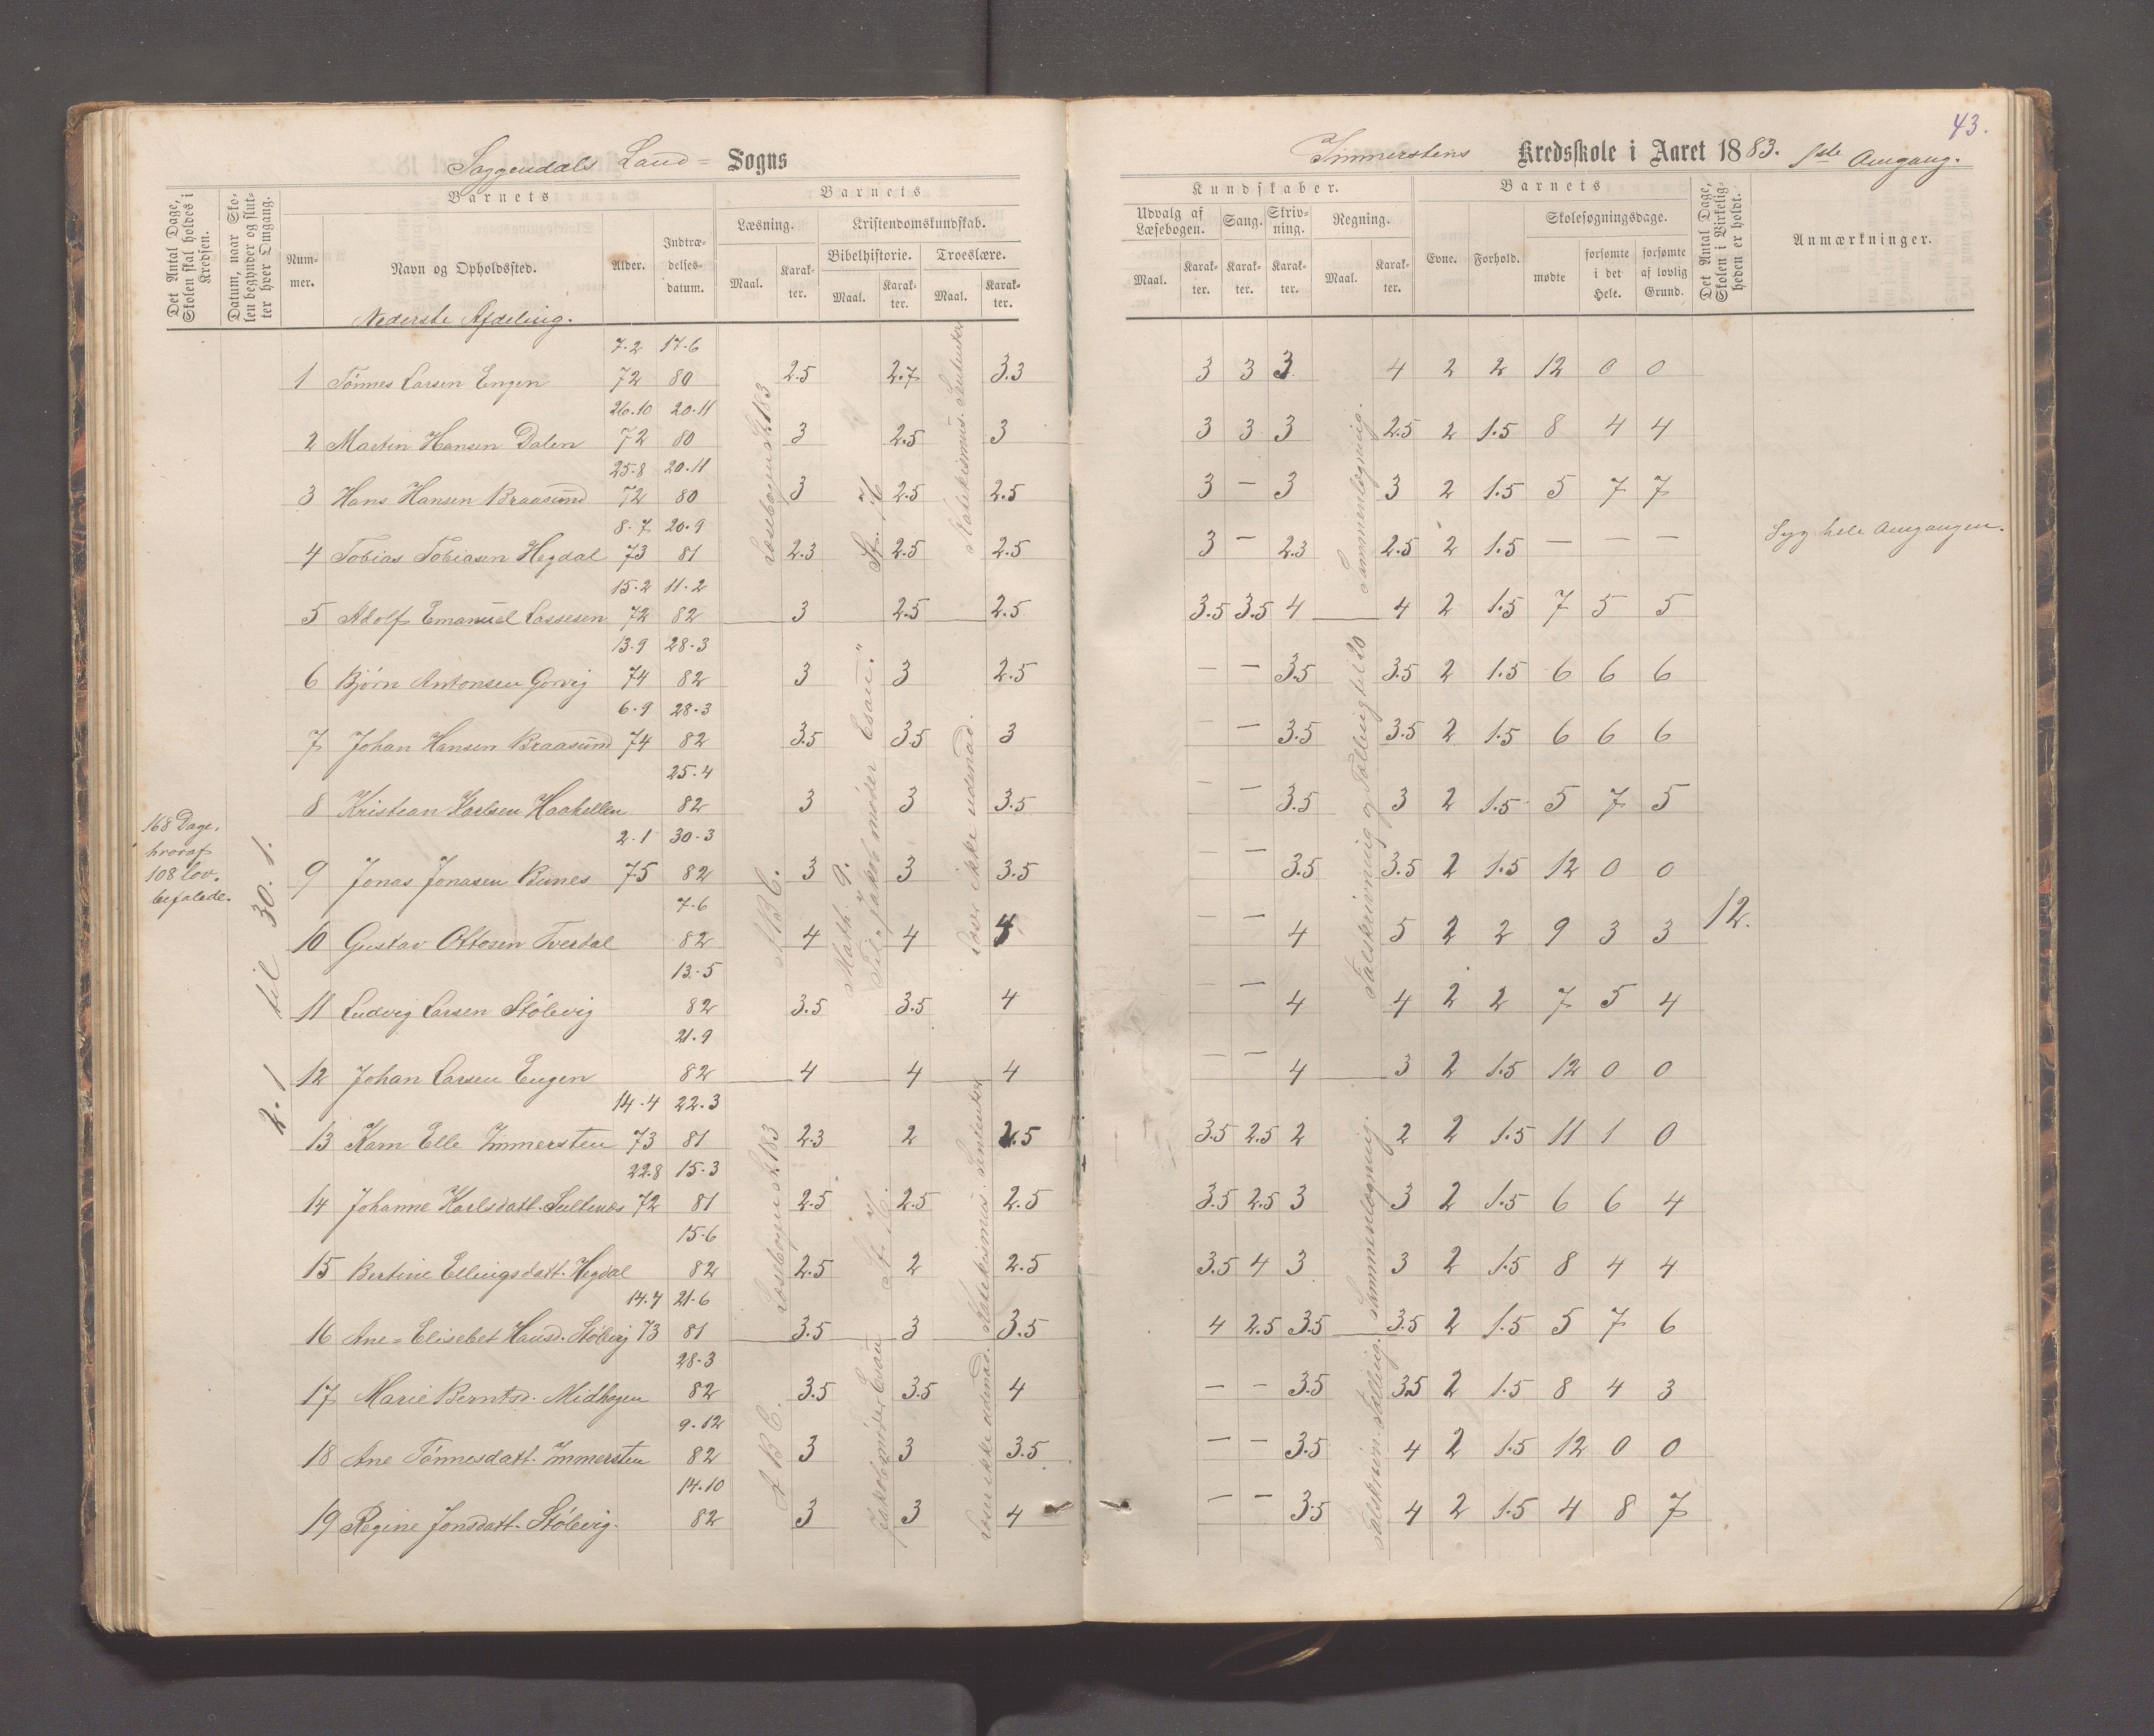 43.
Soggendals Land= Sogns
Immerstens Kredsskole i Aaret 1883. 1ste Omgang.
Det Antal Dage, Skolen skal holdes i Kredsen.
Datum, naar Skolen begynder og slutter hver Omgang.
Barnets
Nummer.
Navn og Opholdssted.
Alder.
Indtrædelsesdatum.
Barnets
Læsning.
Maal.
Karakter.
Kristendomskundskab.
Bibelhistorie.
Maal.
Karakter.
Troeslære.
Maal.
Karakter.
Kundskaber.
Udvalg af Læsebogen.
Maal.
Karakter.
Sang.
Karakter.
Skrivning.
Karakter.
Regning.
Maal.
Karakter.
Barnets
Evne.
Forhold.
Skolesøgningsdage.
mødte
forsømte i det Hele.
forsømte af lovlig Grund.
Det Antal Dage, Skolen i Virkeligheden er holdt.
Anmærkninger.
Nederste Afdeling.
7.2 17.6
1 Tönnes Larsen Engen 72 80 2.5 2.7 3.3 3 3 3 4 2 2 12 0 0
26.10 20.11
2 Martin Hansen Dalen 72 80 3 2.5 3 3 3 3 2.5 2 1.5 8 4 4
25.8 20.11
3 Hans Hansen Braasund 72 80 3 2.5 2.5 3 — 3 3 2 1.5 5 7 7
8.7 20.9
4 Tobias Tobiasen Hegdal 73 81 2.3 2.5 2.5 3 — 2.3 2.5 2 1.5 — — — Syg hele Omgangen.
15.2 11.2
5 Adolf Emanuel Lassesen 72 82 3 2.5 2.5 3.5 3.5 4 4 2 1.5 7 5 5
13.9 28.3
6 Björn Antonsen Gorvig 74 82 3 3 2.5 — — 3.5 3.5 2 1.5 6 6 6
6.9 28.3
7 Johan Hansen Braasund 74 82 3.5 3.5 3 — — 3.5 3.5 2 1.5 6 6 6
25.4
8 Kristian Karlsen Haahellen 82 3 3 3.5 — — 3.5 3 2 1.5 5 7 5
2.1 30.3
9 Jonas Jonasen Bunes 75 82 3 3 3.5 — — 3.5 3.5 2 1.5 12 0 0
7.6
10 Gustav Ottosen Tvedal 82 4 4 4 — — 4 5 2 2 9 3 3
13.5
11 Ludvig Larsen Stölevig 82 3.5 3.5 4 — — 4 4 2 2 7 5 4
21.9
12 Johan Larsen Engen 82 4 4 4 — — 4 3 2 1.5 12 0 0
14.4 22.3
13 Karn Elle Immersten 73 81 2.3 2 2.5 3.5 2.5 2 2 2 1.5 11 1 0
22.8 15.3
14 Johanne Karlsdatt. Sultenæs 72 81 2.5 2.5 2.5 3.5 2.5 3 3 2 1.5 6 6 4
15.6
15 Bertine Ellingsdatt. Hegdal 82 2.5 2 2.5 3.5 4 3 3 2 1.5 8 4 4
14.7 21.6
16 Ane=Elisebet Hansd. Stölevig 73 81 3.5 3 3.5 4 2.5 3.5 3.5 2 1.5 5 7 6
28.3
17 Marie Berntsd. Midhagen 82 3.5 3.5 4 — — 3.5 3.5 2 1.5 8 4 3
9.12
18 Ane Tönnesdatt. Immersten 82 3 3 3.5 — — 3.5 4 2 1.5 12 0 0
14.10
19 Regine Jonsdatt. Stölevig. 82 3 3 4 — — 3.5 4 2 1.5 4 8 7
168 Dage,
hvoraf
108 lov.
befalede.
2.1 til 30.1.
12.
Læsebogens St. 183
A B C.
St. H.
Math. 9.
Til "Jakob möder Esau."
Katekismus. Sentenser
Læser ikke udenad.
Sammenlægning.
Talskrivning og Tælling til 20
Læsebogens St. 183
A B C.
St. H.
Jakob möder Esau
Katekismus. Sentenser
Læser ikke udenad.
Sammenlægning.
Talskrivn. Tælling.